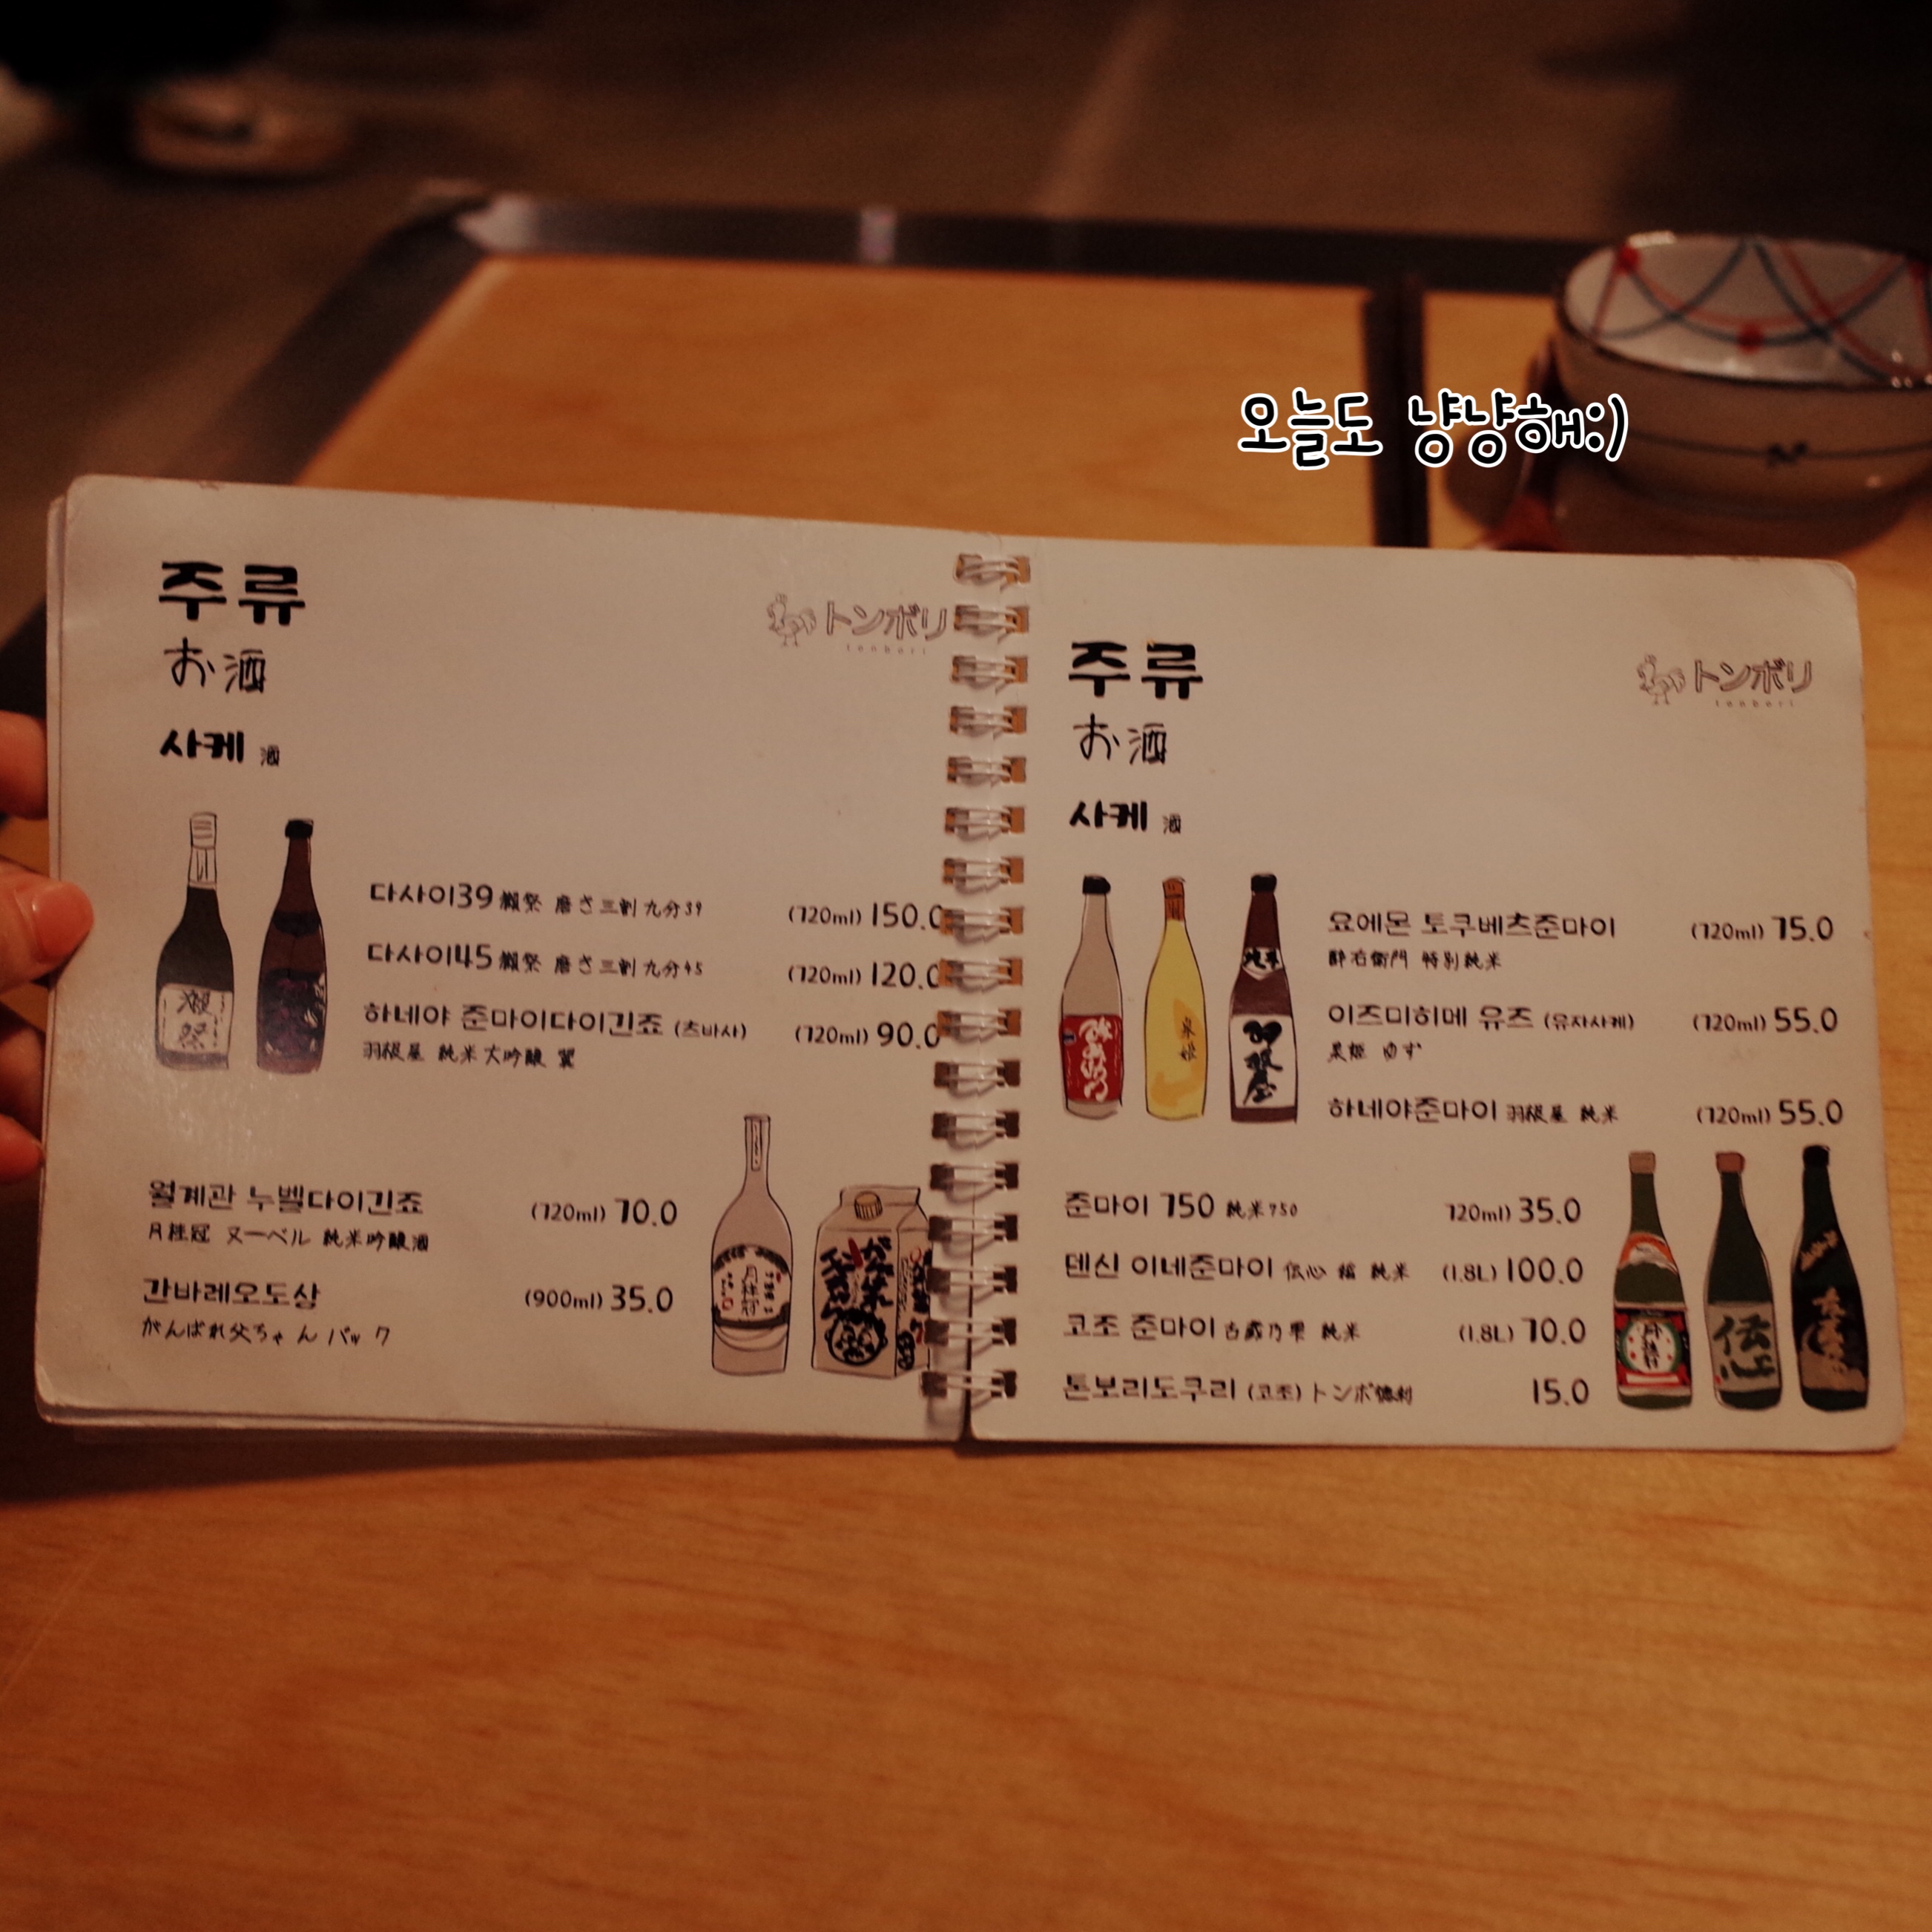 오늘도 냥냥해:)
주류
お酒
トンボリ
tonbori
사케 酒
다사이39 獺祭 磨き三割九分39 (720ml) 150.0
다사이45 獺祭 磨き三割九分45 (720ml) 120.0
하네야 준마이다이긴죠 (츠바사) (720ml) 90.0
羽根屋 純米大吟醸 翼
월계관 누벨다이긴죠 (720ml) 70.0
月桂冠 ヌーベル 純米吟醸酒
간바레오도상 (900ml) 35.0
がんばれ父ちゃんパック
獺祭
月桂冠
주류
お酒
トンボリ
tonbori
사케 酒
요에몬 토쿠베츠준마이 (720ml) 75.0
酔右衛門 特別純米
이즈미히메 유즈 (유자사케) (720ml) 55.0
ゆず
하네야준마이 羽根屋 純米 (720ml) 55.0
羽根屋
준마이 750 純米750 720ml) 35.0
덴신 이네준마이 伝心 稲 純米 (1.8L) 100.0
코조 준마이 古露乃雫 純米 (1.8L) 70.0
톤보리도쿠리 (코조) トンボ徳利 15.0
伝心